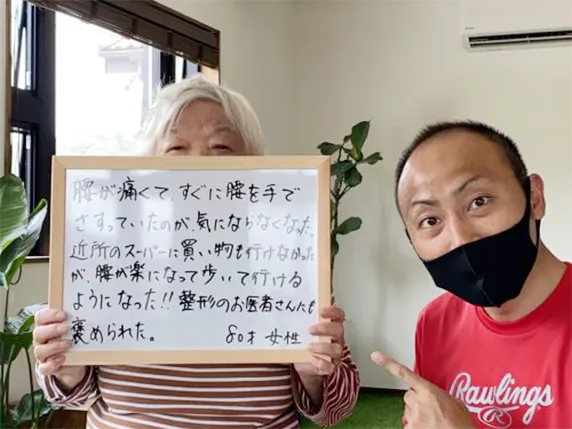 腰が痛くて、すぐに腰を手で
さすっていたのが、気にならなくなった。
近所のスーパーに買い物も行けなかった
が、腰が楽になって歩いて行ける
ようになった!!整形のお医者さんにも
褒められた。 80才 女性
Rawlings
R